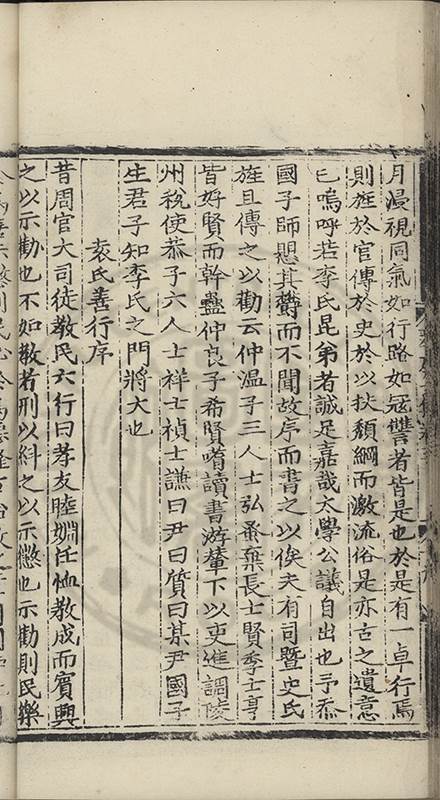 月漫視同氣如行路如冦讐者皆是也於是有一卓行焉
則旌於官傳於史於以扶頽綱而激流俗是亦古之遺意
已嗚呼若李氏昆弟者誠足嘉哉太學公議自出也予忝
國子師愳其鬱而不聞故序而書之以俟夫有司暨史氏
旌且傳之以勸云仲温子三人士弘蚤棄長士賢季士亨
皆好賢而幹蠱仲良子希賢嗜讀書游輦下以吏進調陵
州稅使恭子六人士祥士禎士謙曰尹曰質曰某尹國子
生君子知李氏之門將大也
袁氏善行序
昔周官大司徒敎民六行曰孝友睦婣任恤敎成而賓興
之以示勸也不如敎者刑以糾之以示懲也示勸則民樂